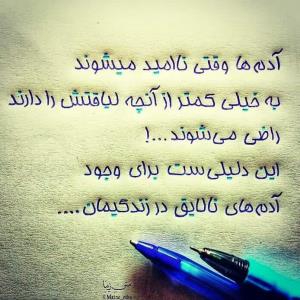 آدم ها وقتی ناامید میشوند
به خیلی کمتر از آنچه لیاقتش را دارند
راضی می‌شوند...!
این دلیلی‌ست برای وجود
آدم‌های نالایق در زندگیمان....